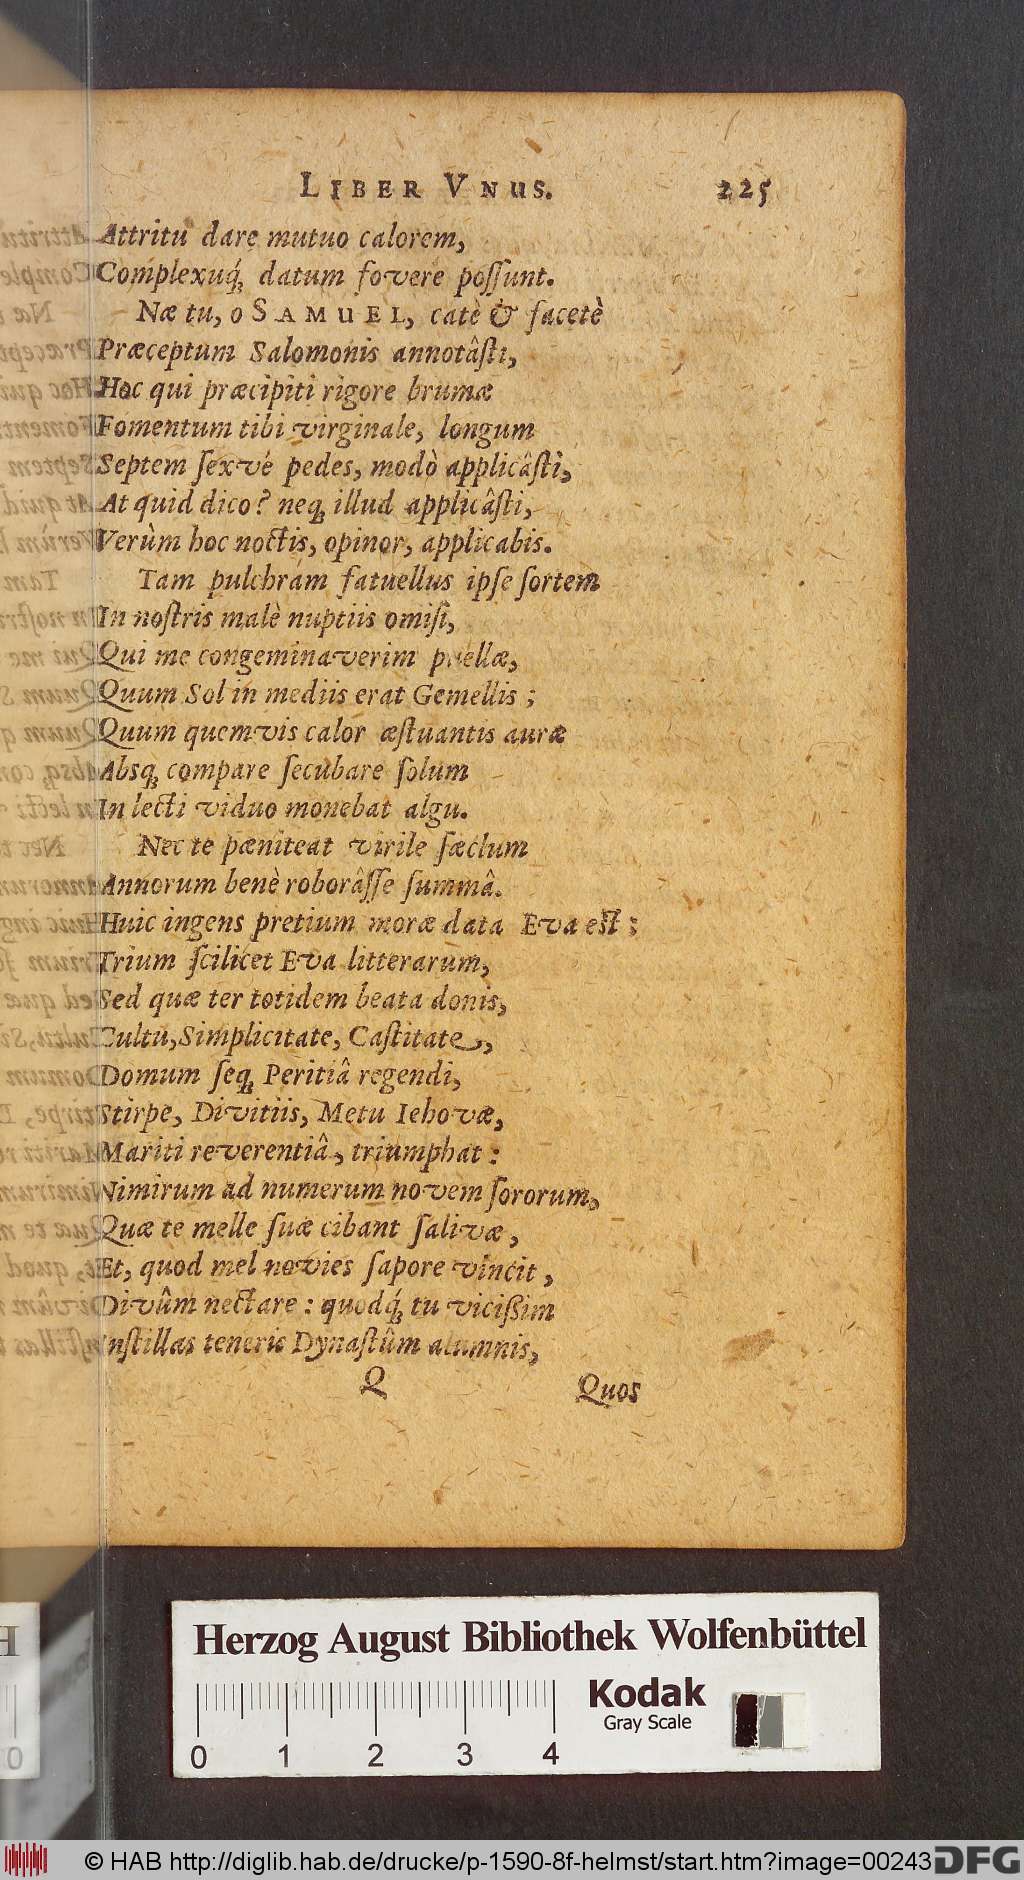 LIBER VNUS. 225
Attritu dare mutuo calorem,
Complexuq́; datum fovere poſſunt.
Næ tu, o SAMUEL, catè & facetè
Præceptum Salomonis annotâſti,
Hoc qui præcipiti rigore brumæ
Fomentum tibi virginale, longum
Septem ſexvé pedes, modò applicâſti,
At quid dico? neq; illud applicâſti,
Verùm hoc noctis, opinor, applicabis.
Tam pulchram fatuellus ipſe ſortem
In noſtris malè nuptiis omiſi,
Qui me congeminaverim puellæ,
Quum Sol in mediis erat Gemellis ;
Quum quemvis calor æſtuantis auræ
Absq; compare ſecubare ſolum
In lecti viduo monebat algu.
Nec te pæniteat virile ſæclum
Annorum benè roborâſſe ſummâ.
Huic ingens pretium moræ data Eva eſt ;
Trium ſcilicet Eva litterarum,
Sed quæ ter totidem beata donis,
Cultu, Simplicitate, Caſtitate,
Domum ſeq; Peritiâ regendi,
Stirpe, Divitiis, Metu Iehovæ,
Mariti reverentiâ, triumphat :
Nimirum ad numerum novem ſororum,
Quæ te melle ſuæ cibant ſalivæ,
Et, quod mel novies ſapore vincit,
Divûm nectare : quodq́; tu viciſſim
Inſtillas teneris Dynaſtûm alumnis,
Q Quos
Herzog August Bibliothek Wolfenbüttel
Kodak
Gray Scale
0 1 2 3 4
© HAB http://diglib.hab.de/drucke/p-1590-8f-helmst/start.htm?image=00243 DFG